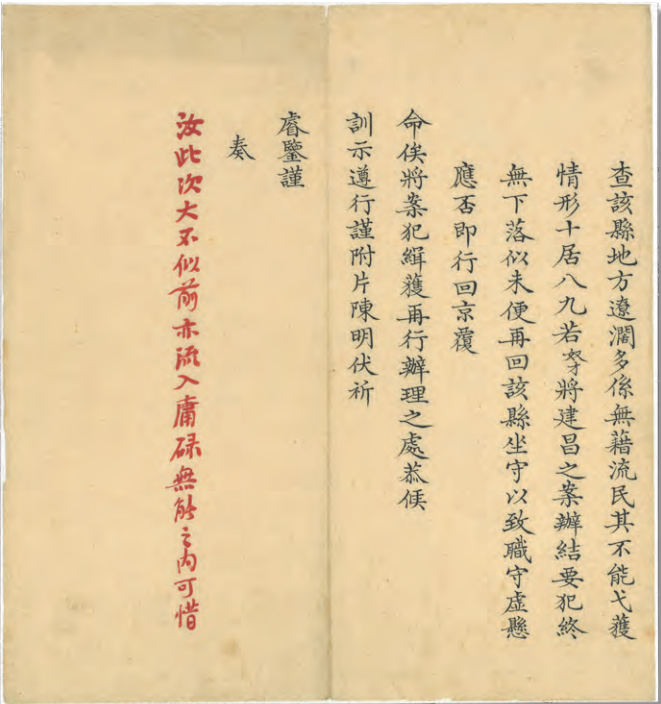 查該縣地方遼濶多係無藉流民其不能弋獲
情形十居八九若奴才將建昌之案辦結要犯終
無下落似未便再回該縣坐守以致職守虛懸
應否即行回京覆
命俟將案犯緝獲再行辦理之處恭候
訓示遵行謹附片陳明伏祈
睿鑒謹
奏
汝此次大不似前亦流入庸碌無能之內可惜